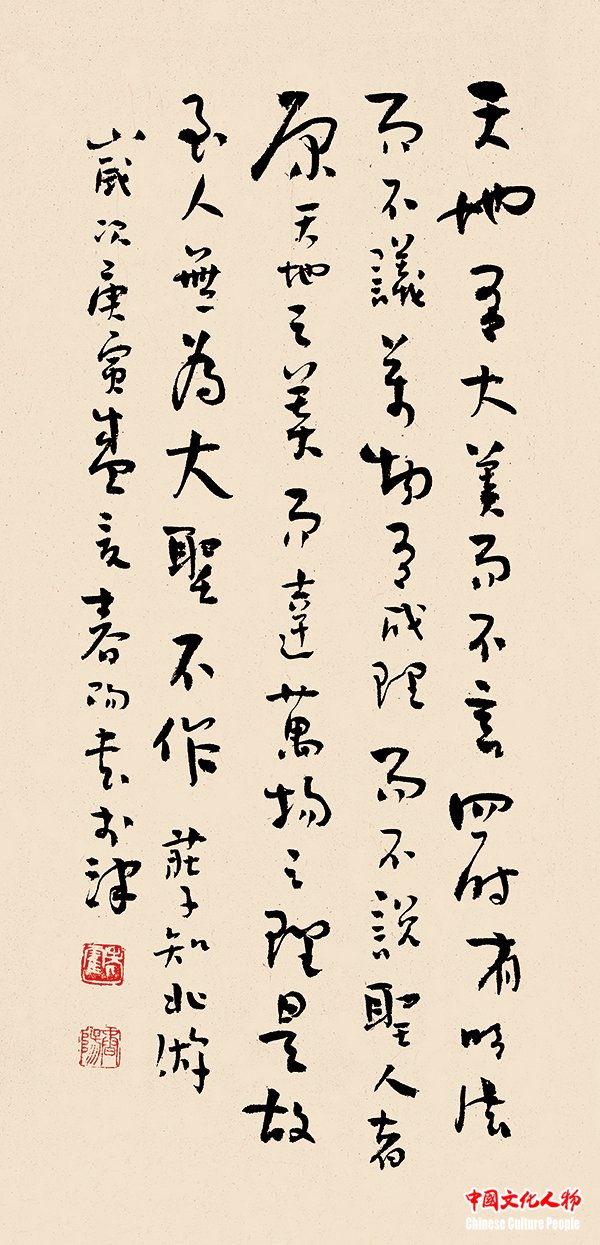 天地有大美而不言四时有明法
而不議萬物有成理而不說聖人者
原天地之美而達萬物之理是故
至人無為大聖不作 莊子知北游
歲次庚寅盛夏春陽書於津
中國文化人物
Chinese Culture People